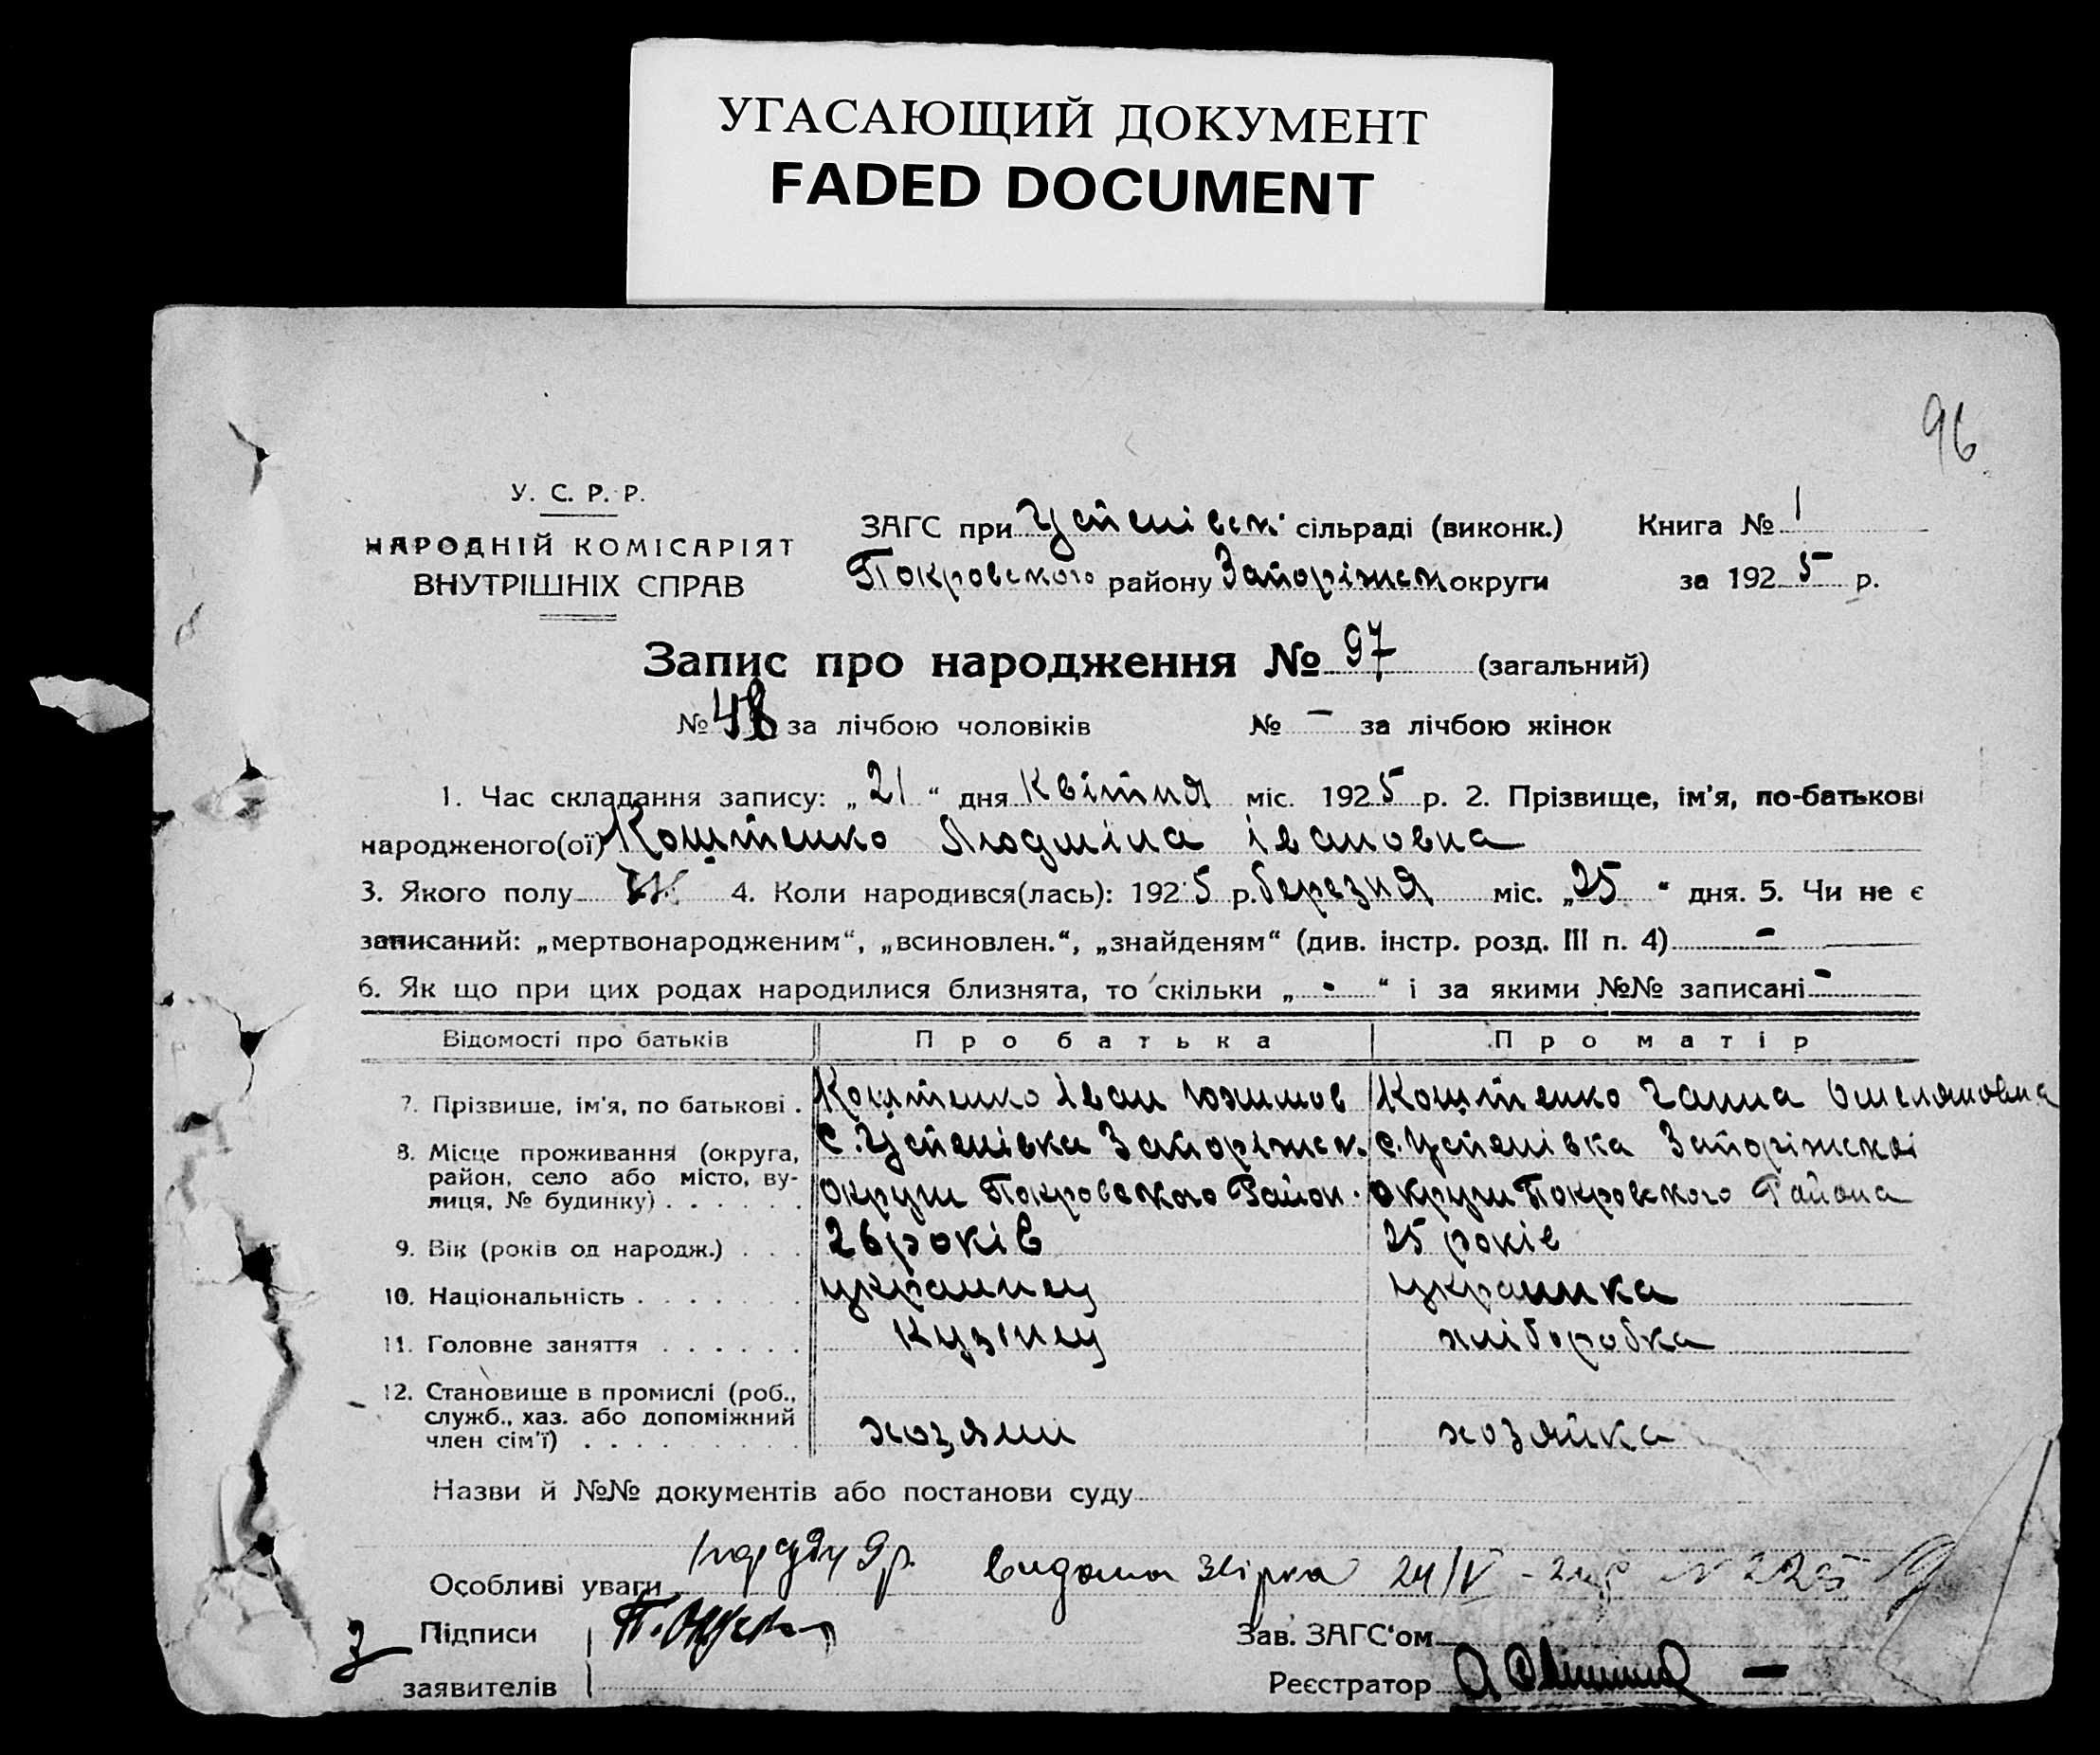 УГАСАЮЩИЙ ДОКУМЕНТ
FADED DOCUMENT
96
У. С. Р. Р.
НАРОДНІЙ КОМІСАРІЯТ
ВНУТРІШНІХ СПРАВ
ЗАГС при Успенівськ. сільраді (виконк.)
Покровського району Запоріжськ округи
Книга № 1
за 1925 р.
Запис про народження № 97 (загальний)
№ 48 за лічбою чоловіків № – за лічбою жінок
1. Час складання запису: „21“ дня Квітня міс. 1925 р. 2. Прізвище, ім'я, по-батькові
народженого(ої) Коштенко Людміла івановна
3. Якого полу ж 4. Коли народився(лась): 1925 р. березня міс. „25“ дня. 5. Чи не є
записаний: „мертвонародженим“, „всиновлен.“, „знайденям“ (див. інстр. розд. III п. 4) -
6. Як що при цих родах народилися близнята, то скільки „ - “ і за якими №№ записані -
Відомості про батьків Про батька Про матір
7. Прізвище, ім'я, по батькові . Коштенко іван Юхимов Коштенко Ганна Омеляновна
8. Місце проживання (округа, район, село або місто, вулиця, № будинку) . . . . . .
с. Успенівка Запоріжськ. с. Успенівка Запоріжскоі
округи Покровського Район. округи Покровського Района
9. Вік (років од народж.) . . . 26 років 25 років
10. Національність . . . . . . . украинец украинка
11. Головне заняття . . . . . . кузнец хліборобка
12. Становище в промислі (роб.,
служб., хаз. або допоміжний
член сім'ї) . . . . . . . . . хозяин хозяйка
Назви й №№ документів або постанови суду
Особливі уваги видана Звірка 24/IV
Підписи
заявителів
Зав. ЗАГС'ом
Реєстратор